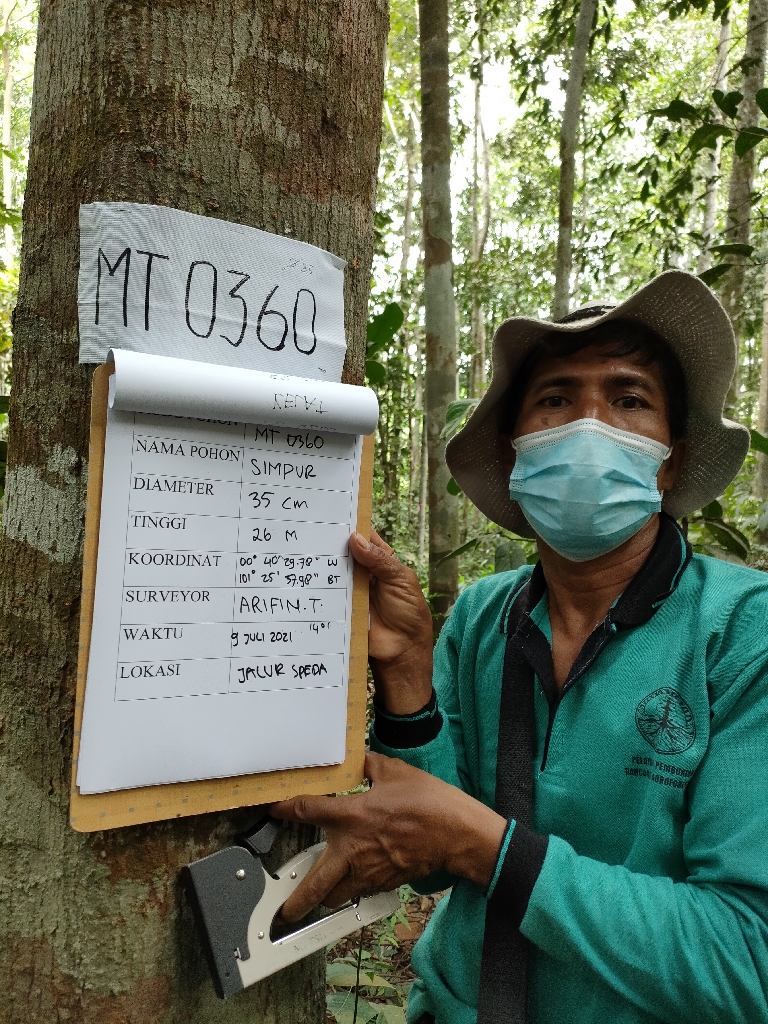 MT 0360
MT 0360
NAMA POHON SIMPUR
DIAMETER 35 cm
TINGGI 26 M
KOORDINAT 00° 40' 29.78" W
101° 25' 57.98" BT
SURVEYOR ARIFIN.T.
WAKTU 9 JULI 2021
LOKASI JALUR SPEDA